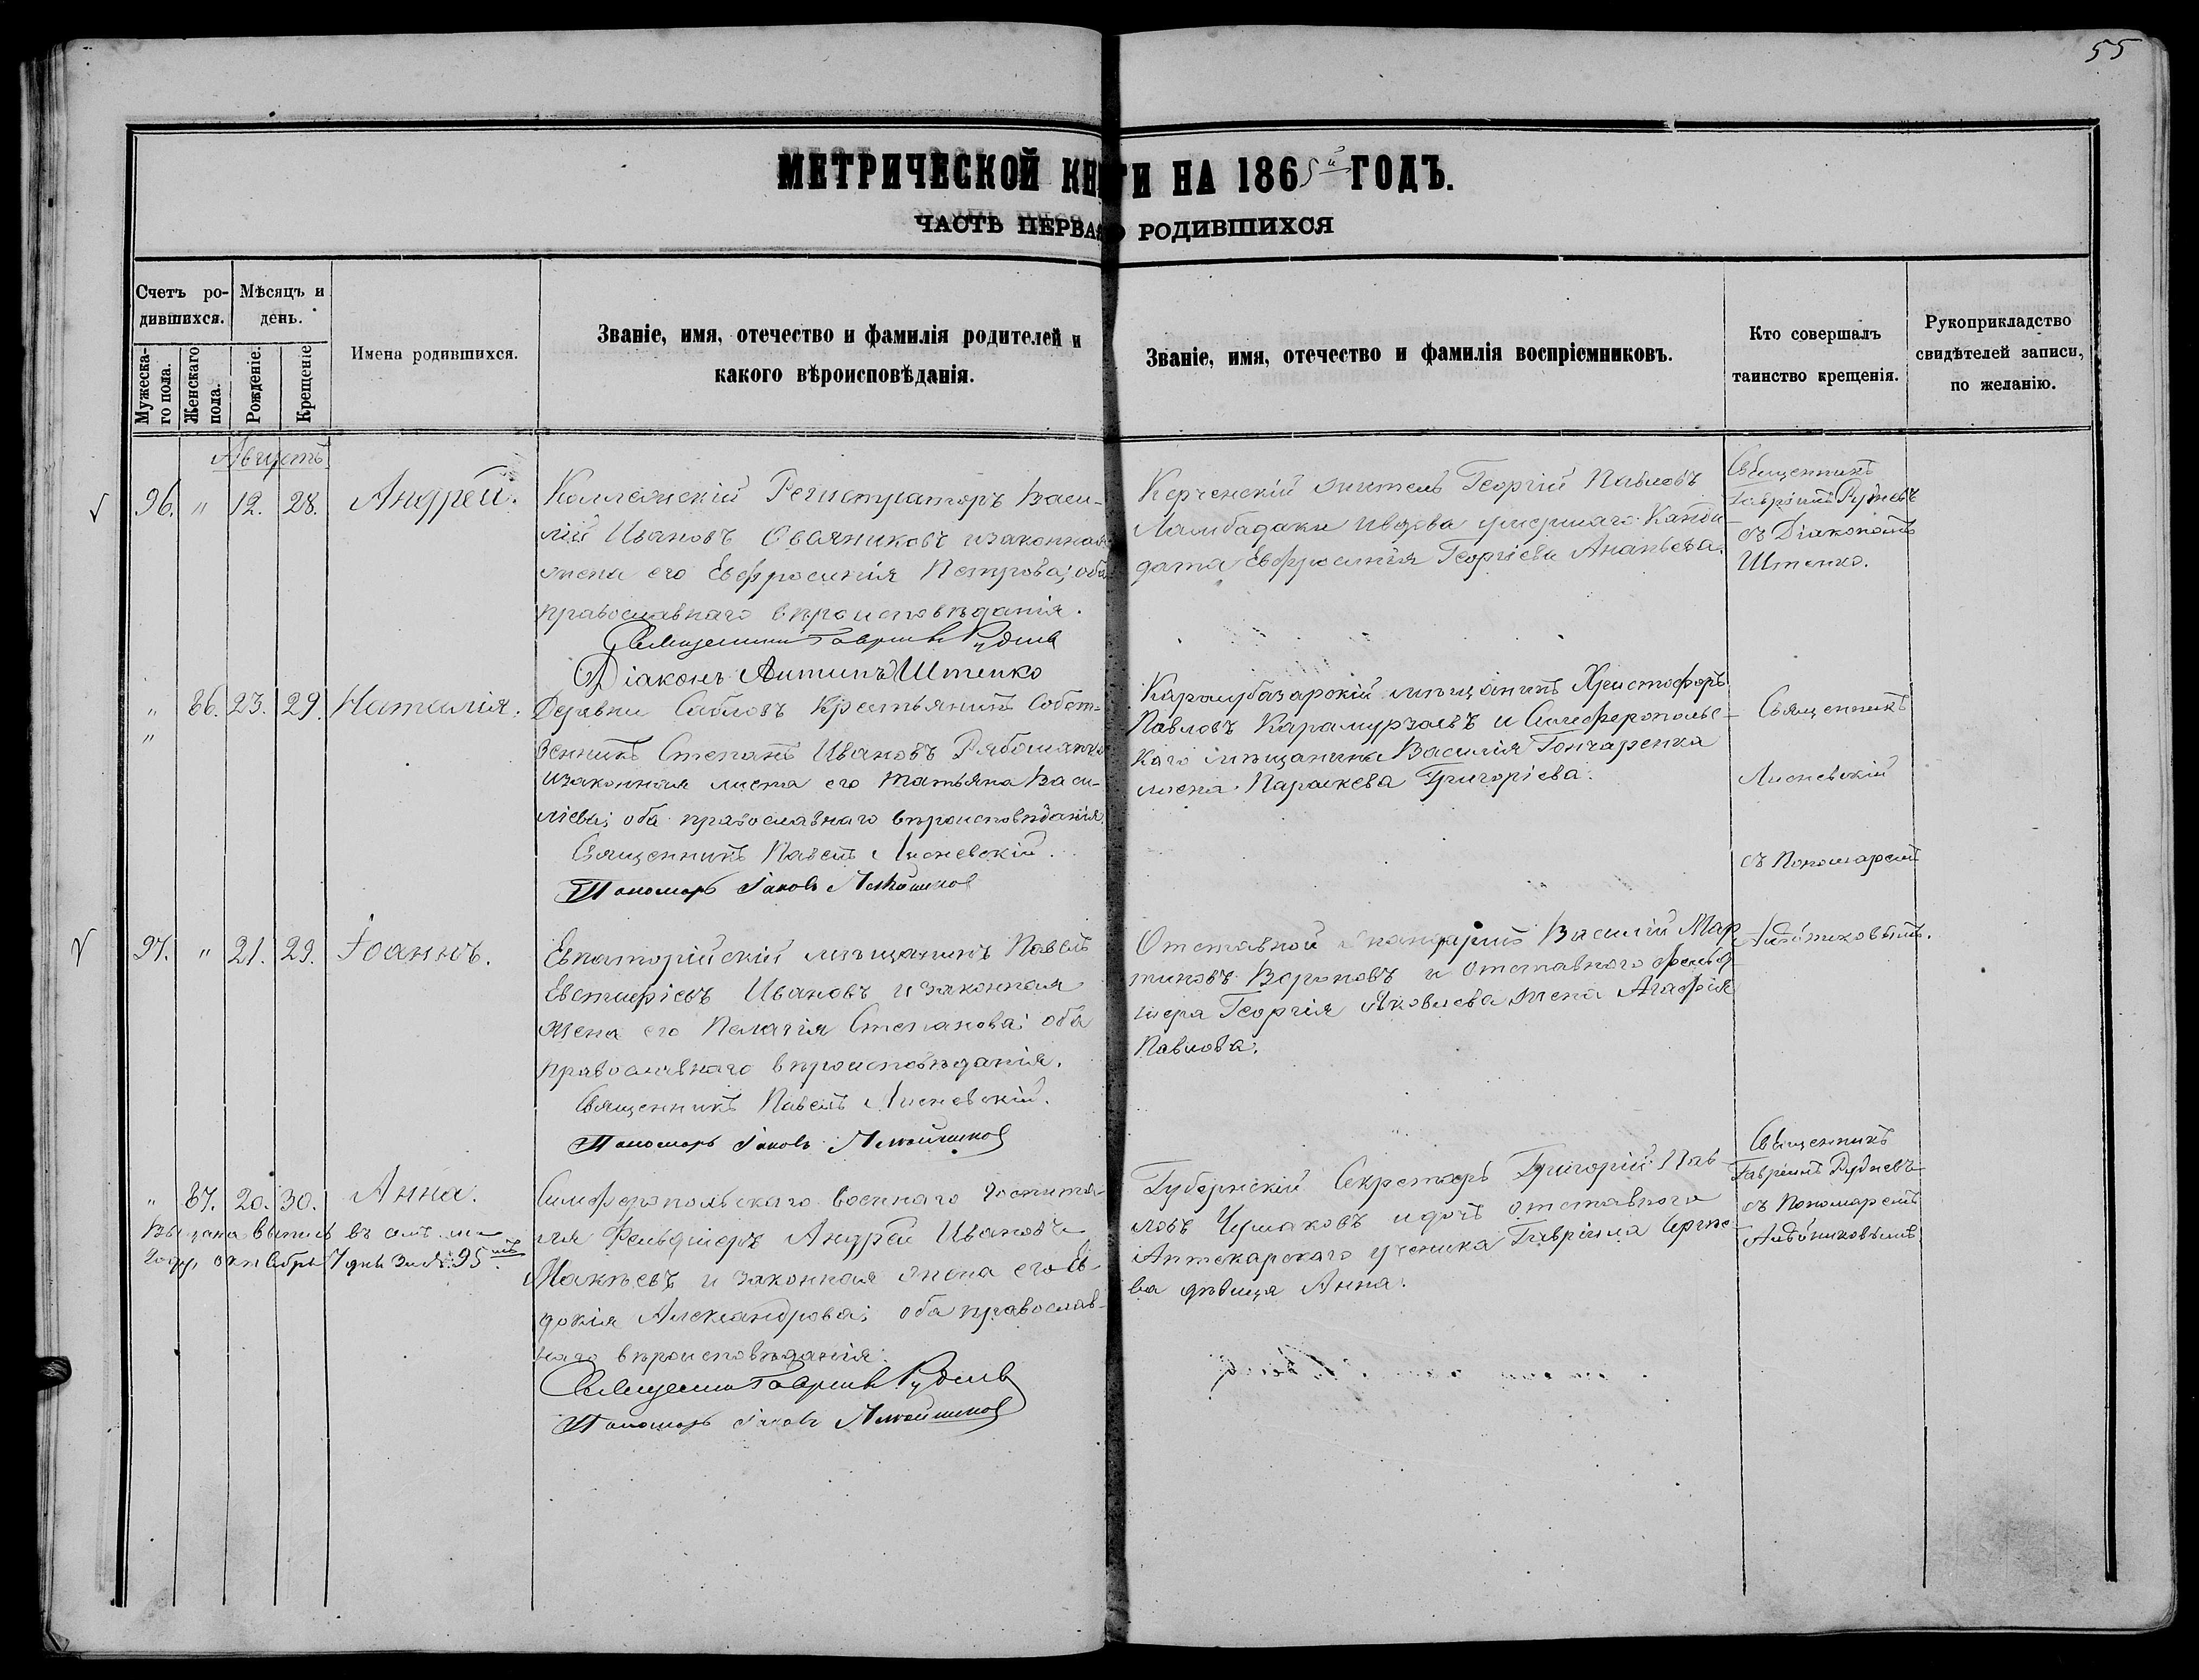 55
МЕТРИЧЕСКОЙ КНИГИ НА 1865й ГОДЪ.
ЧАСТЬ ПЕРВАЯ О РОДИВШИХСЯ
Счетъ ро-
дившихся.
Мужеска-
го пола.
Женскаго
пола.
Мѣсяцъ и
день.
Рожденіе.
Крещеніе
Имена родившихся.
Званіе, имя, отечество и фамилія родителей и
какого вѣроисповѣданія.
Званіе, имя, отечество и фамилія воспріемниковъ.
Кто совершалъ
таинство крещенія.
Рукоприкладство
свидѣтелей записи,
по желанію.
Августъ
96. " 12. 28. Андрей.
Коллежскій Регистраторъ Васи-
лій Ивановъ Овсяниковъ и законная
жена его Евфросинія Петрова; оба
православнаго вѣроисповѣданія.
Священникъ Гавріилъ Рудневъ
Діаконъ Антипъ Штепко
Керченскій житель Георгій Павловъ
Ламбадаки и вдова умершаго Канди-
дата Евфросинія Георгіева Ананьева.
Священникъ
Гавріилъ Рудневъ
съ Діакономъ
Штепко.
" 86. 23. 29. Наталія.
"
Деревни Сабловъ Крестьянинъ Собст-
венникъ Степанъ Ивановъ
и законная жена его Татьяна Васи-
ліева; оба православнаго вѣроисповѣданія.
Священникъ Павелъ Лисневскій.
Пономарь Іаковъ
Карасубазарскій мѣщанинъ Христофоръ
Павловъ Карамурзаевъ и Симферопольс-
каго мѣщанина Василія Гончаренка
жена Параскева Григоріева.
Священникъ
Лисневскій
съ Пономаремъ
97. " 21. 29. Іоаннъ.
Евпаторійскій мѣщанинъ Павелъ
Евстафіевъ Ивановъ и законная
жена его Пелагія Степанова; оба
православнаго вѣроисповѣданія.
Священникъ Павелъ Лисневскій.
Пономарь Іаковъ
Отставной Василій Мар-
тиновъ Вороновъ и отставного фельд-
шера Георгія Яковлева жена Агафія
Павлова.
" 87. 20. 30. Анна.
году, октября 7 дня за № 95мъ.
Симферопольскаго военнаго госпита-
ля Фельдшеръ Андрей Ивановъ
Макѣевъ и законная жена его Ев-
докія Александрова; оба православ-
наго вѣроисповѣданія.
Священникъ Гавріилъ Рудневъ
Пономарь Іаковъ
Губернскій Секретарь Григорій Пав-
ловъ Чумаковъ и дочь отставного
Аптекарскаго ученика Гавріила Сергѣе-
ва дѣвица Анна.
Священникъ
Гавріилъ Рудневъ
съ Пономаремъ